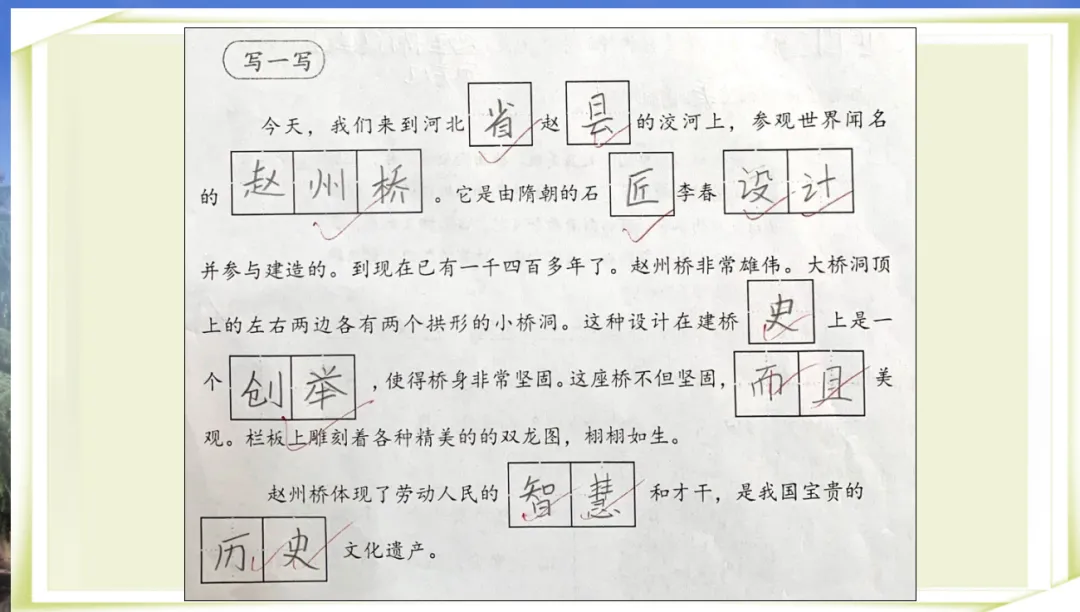 写一写
今天，我们来到河北省赵县的洨河上，参观世界闻名
的赵州桥。它是由隋朝的石匠李春设计
并参与建造的。到现在已有一千四百多年了。赵州桥非常雄伟。大桥洞顶
上的左右两边各有两个拱形的小桥洞。这种设计在建桥史上是一
个创举，使得桥身非常坚固。这座桥不但坚固，而且美
观。栏板上雕刻着各种精美的的双龙图，栩栩如生。
赵州桥体现了劳动人民的智慧和才干，是我国宝贵的
历史文化遗产。